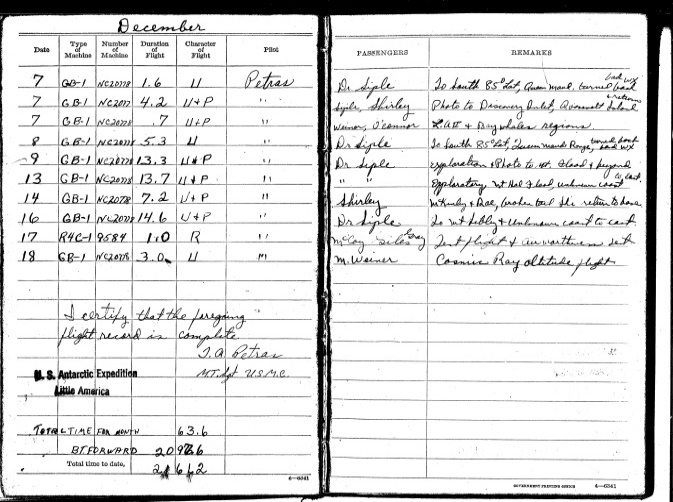 December
Date Type of Machine Number of Machine Duration of Flight Character of Flight Pilot PASSENGERS REMARKS
7 GB-1 NC20778 1.6 U Petras Dr Siple To South 85° Lat, Queen Maud, turned back bad wx
7 GB-1 NC2077 4.2 U+P " Siple, Shirley Photo to Discovery Inlet, Roosevelt Island + return
7 GB-1 NC20778 .7 U+P " Weiner, O'Connor L.A.III & Bay whales regions.
8 GB-1 NC20778 5.3 U " Dr Siple To South 85° Lat, Queen Maud Range, turned back bad wx
9 GB-1 NC20778 13.3 U+P " Dr Siple exploration & Photo to Mt. Hood & beyond
13 GB-1 NC20778 13.7 U+P " " " Exploratory Mt Hal Flood, unknown coast to east
14 GB-1 NC20778 7.2 U+P " Shirley McKinley & Rae, broken return to base
16 GB-1 NC20778 14.6 U+P " Dr Siple To Mt Sibley & Unknown coast to east
17 R4C-1 9584 1.0 R " McCoy Giles Gray Test flight & airworthiness test
18 GB-1 NC20778 3.0 U " M. Weiner Cosmic Ray altitude flight
I certify that the foregoing
flight record is complete
T.A Petras
M.T. Sgt U.S.M.C.
U. S. Antarctic Expedition
Little America
TOTAL TIME FOR MONTH 63.6
BT FORWARD
Total time to date,
4—6341
GOVERNMENT PRINTING OFFICE 4—6341